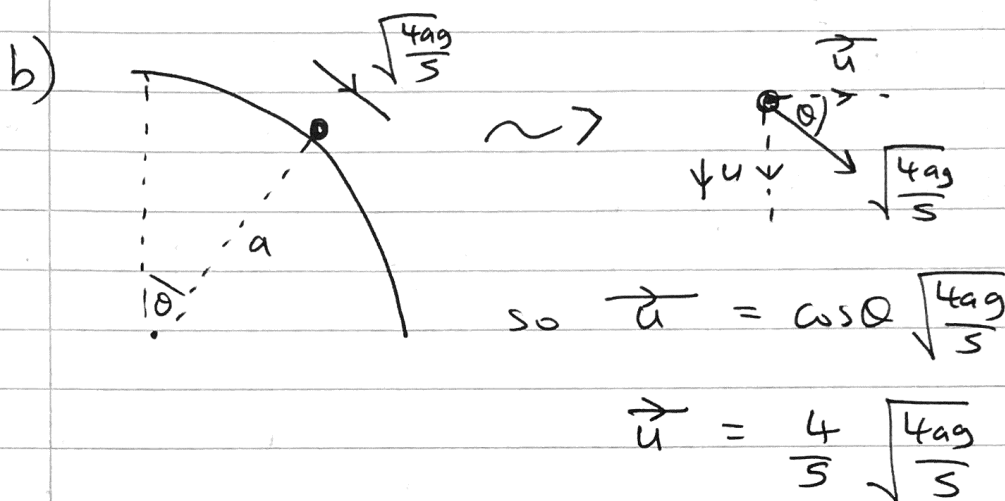 b)
√(4ag/5)
a
θ
~>
→u
θ
↓u
√(4ag/5)
so →u = cosθ √(4ag/5)
→u = 4/5 √(4ag/5)